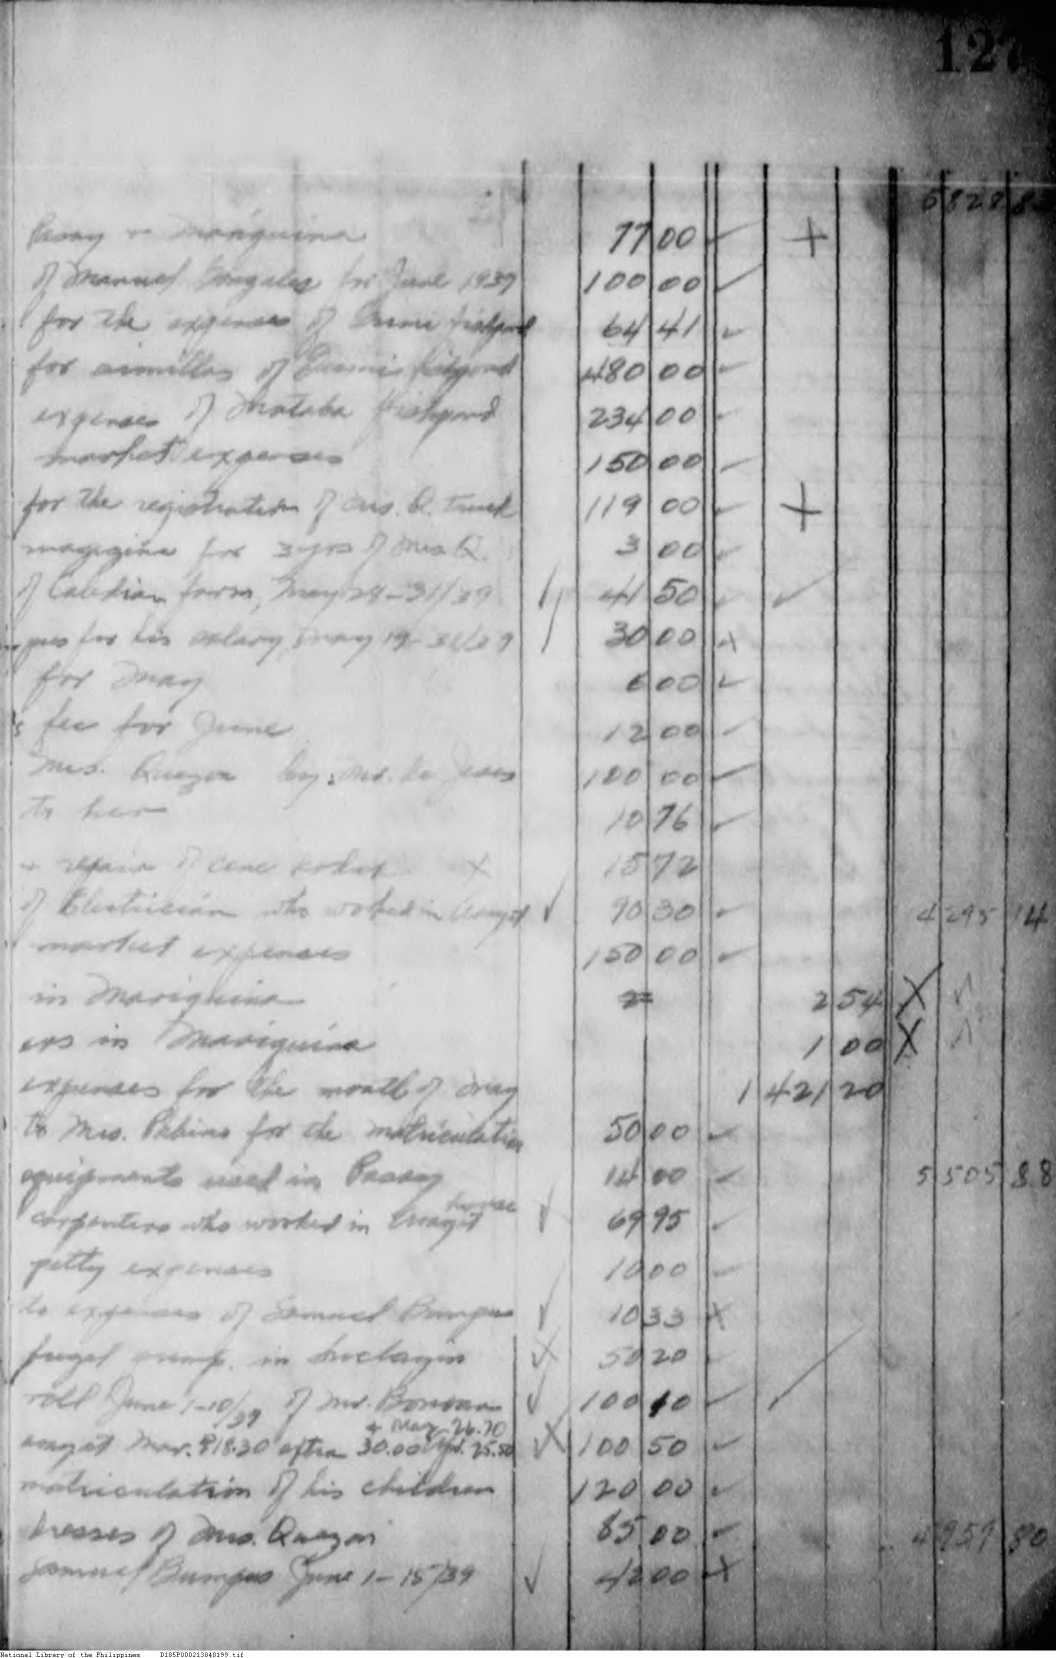 127
6828 8
Pasay + Mariquina 77 00 ✓ +
of Manuel Gonzales for June 1939 100 00 ✓
for the expenses of fishpond 64 41 ✓
for simillas of fishpond 480 00 ✓
expenses of Mataba Fishpond 234 00 ✓
market expenses 150 00 ✓
for the registration of Mrs. Q. truck 119 00 ✓ +
magazine for 3 yrs of Mrs Q. 3 00 ✓
of farm, May 28-31/39 41 50 ✓ ✓
for his salary, May 19-31/39 30 00 x
for May 6 00 ✓
fee for June 12 00 ✓
Mrs. Quezon by: Mr. de Jesus 100 00 ✓
to her 10 76 ✓
+ repair of cine kodak x 15 72
of Electrician who worked in Arayat ✓ 90 30 ✓ 4 295 14
market expenses 150 00 ✓
in Mariquina 2 54 X
ers in Mariquina 1 00 X
expenses for the month of May 1 421 20
to Mrs. Pabino for the matriculation 50 00 ✓
equipments used in Pasay 14 00 ✓ 5 505 88
house
carpenters who worked in Arayat ✓ 69 95 ✓
petty expenses 10 00 ✓
to expenses of Samuel Bumgus ✓ 10 33 x
in 50 20
roll June 1-10/39 of Mr. ✓ 100 10 ✓
+ May 26.70
Arayat Mar. ₱18.30 after 30.00 Apl. 25.50 100 50 ✓
matriculation of his children 120 00 ✓
dresses of Mrs. Quezon 85 00 ✓ 4957 80
Samuel Bumgus June 1-15/39 ✓ 42 00 x
National Library of the Philippines D185P000213040199.tif